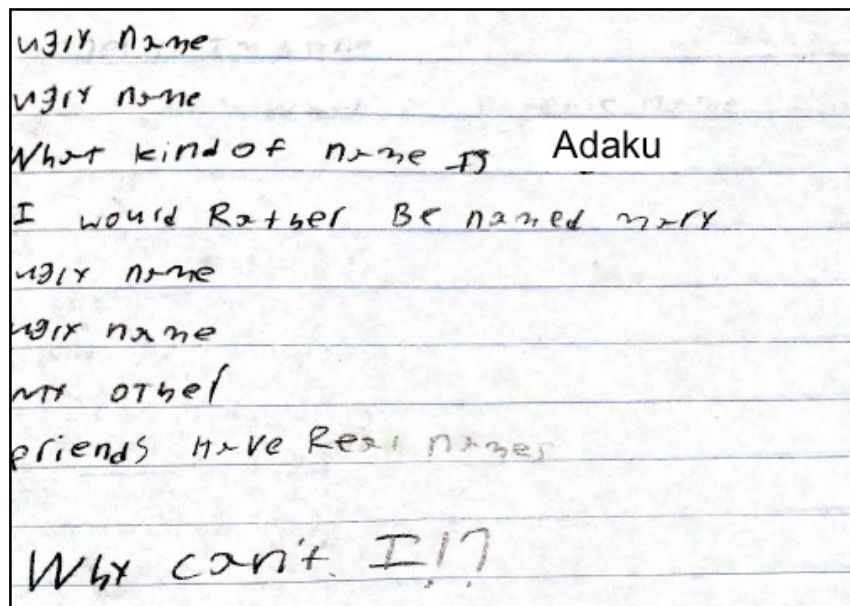 ugly name
ugly name
What kind of name Is Adaku
I would Rather Be named mary
ugly name
ugly name
my other
friends Have Real names
Why can't I!?